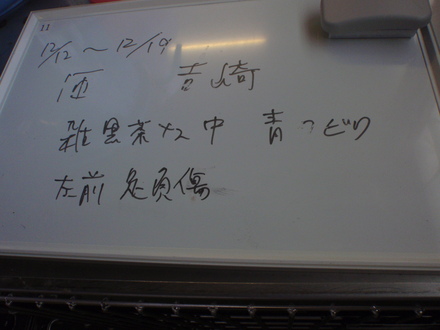 11
12/12 ～ 12/19
吉崎
雑 黒茶 メス 中 青つどり
左前足負傷